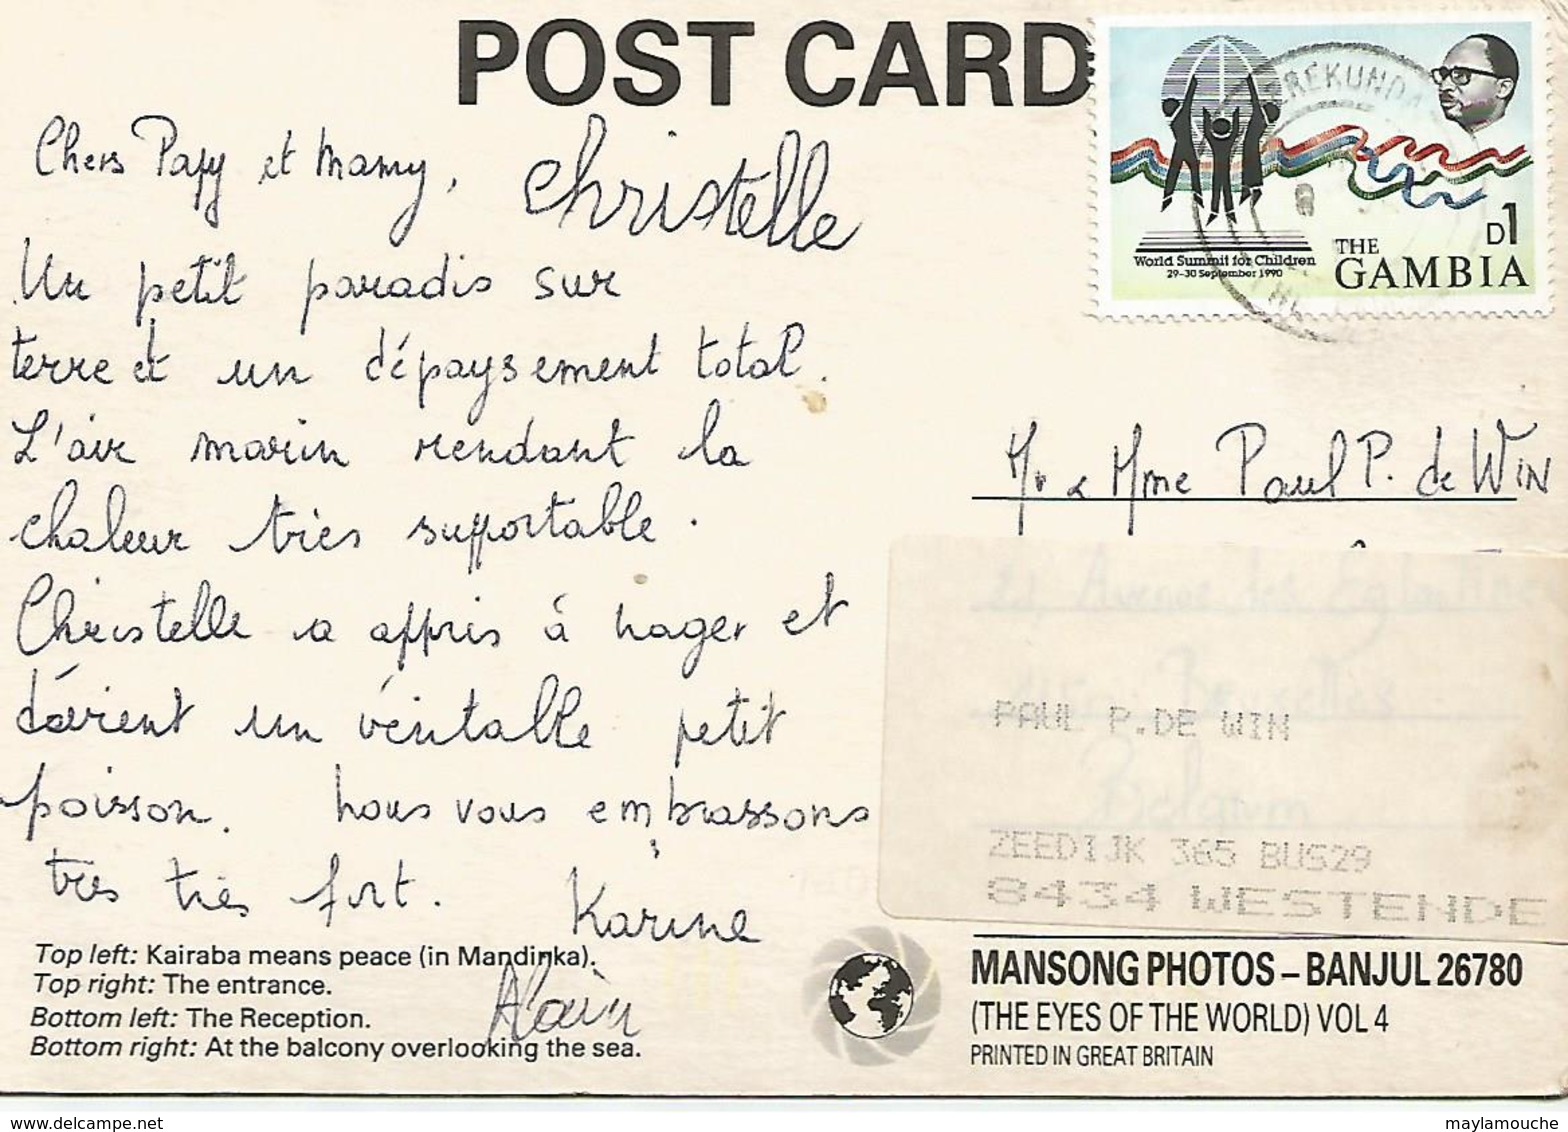 POST CARD
Chers Papy et Mamy,
Christelle
Un petit paradis sur
terre et un dépaysement total.
L'air marin rendant la
chaleur très supportable.
Christelle a appris à nager et
devient un véritable petit
poisson. Nous vous embrassons
très très fort.
Karine
Alain
Top left: Kairaba means peace (in Mandinka).
Top right: The entrance.
Bottom left: The Reception.
Bottom right: At the balcony overlooking the sea.
SEREKUNDA
World Summit for Children
29-30 September 1990
D1
THE
GAMBIA
Mr & Mme Paul P. de WIN
Avenue des Eglantines
Bruxelles
Belgium
PAUL P.DE WIN
ZEEDIJK 365 BUS29
8434 WESTENDE
MANSONG PHOTOS – BANJUL 26780
(THE EYES OF THE WORLD) VOL 4
PRINTED IN GREAT BRITAIN
maylamouche